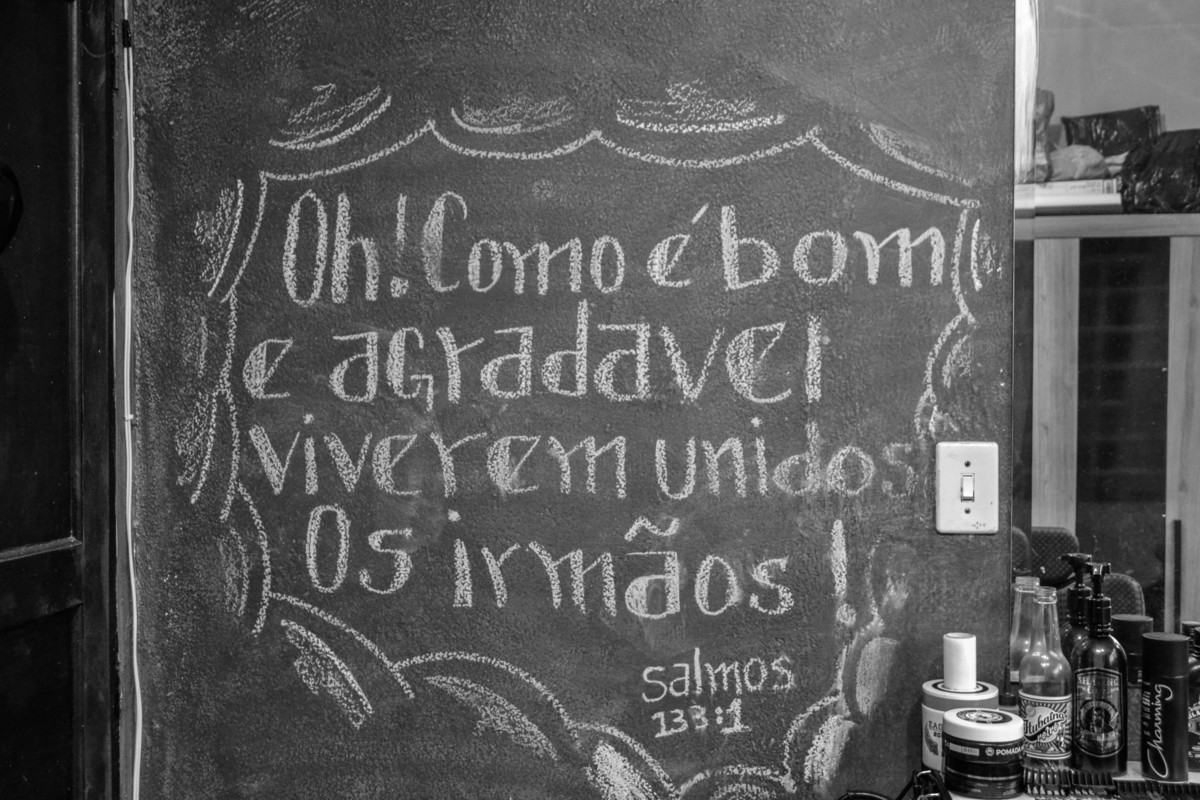 Oh! Como é bom
e agradavel
viverem unidos
Os irmãos!
salmos
133:1
Itubaína
POMADA
Charming